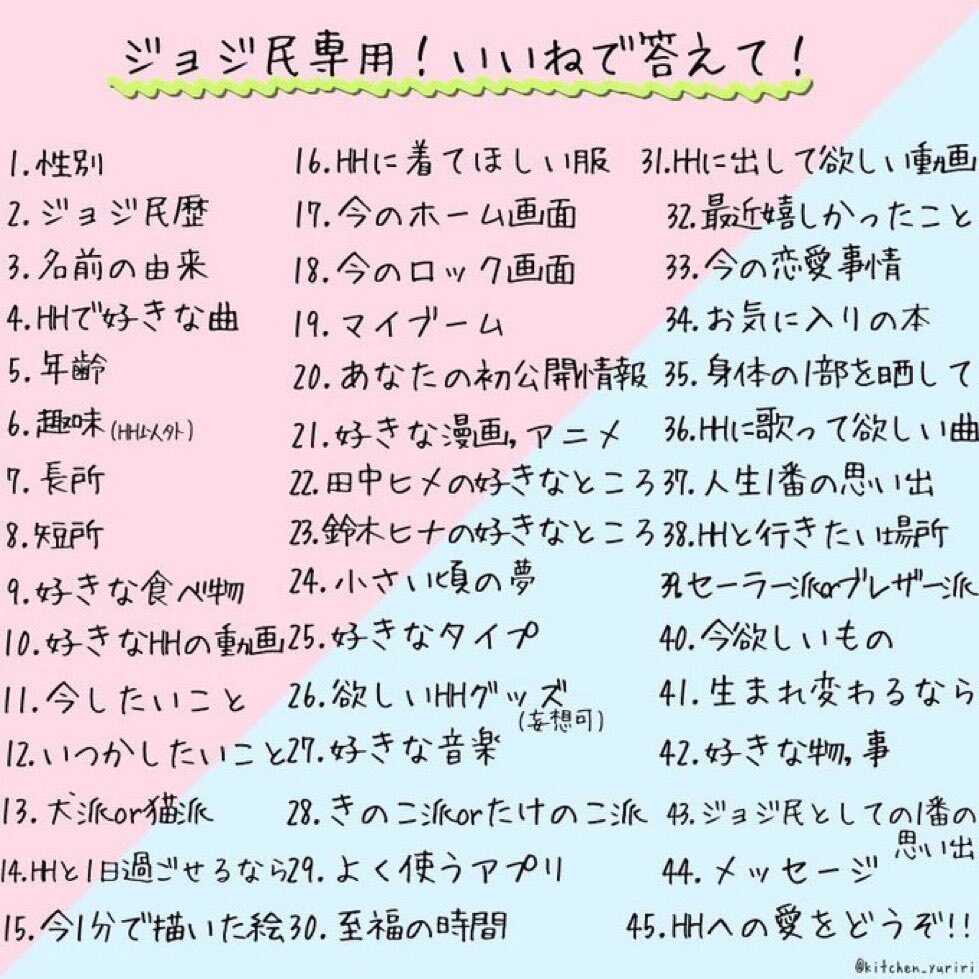 ジョジ民専用！いいねで答えて！
1.性別
2.ジョジ民歴
3.名前の由来
4.HHで好きな曲
5.年齢
6.趣味(HH以外)
7.長所
8.短所
9.好きな食べ物
10.好きなHHの動画
11.今したいこと
12.いつかしたいこと
13.犬派or猫派
14.HHと1日過ごせるなら
15.今1分で描いた絵
16.HHに着てほしい服
17.今のホーム画面
18.今のロック画面
19.マイブーム
20.あなたの初公開情報
21.好きな漫画,アニメ
22.田中ヒメの好きなところ
23.鈴木ヒナの好きなところ
24.小さい頃の夢
25.好きなタイプ
26.欲しいHHグッズ
(妄想可)
27.好きな音楽
28.きのこ派orたけのこ派
29.よく使うアプリ
30.至福の時間
31.HHに出して欲しい動画
32.最近嬉しかったこと
33.今の恋愛事情
34.お気に入りの本
35.身体の1部を晒して
36.HHに歌って欲しい曲
37.人生1番の思い出
38.HHと行きたい場所
39.セーラー派orブレザー派
40.今欲しいもの
41.生まれ変わるなら
42.好きな物,事
43.ジョジ民としての1番の
思い出
44.メッセージ
45.HHへの愛をどうぞ!!
@kitchen_yuriri